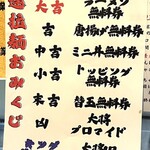 運拉麺おみくじ
大吉 ラーメン無料券
吉 唐揚げ無料券
中吉 ミニ丼無料券
小吉 トッピング無料券
末吉 替玉無料券
凶 大将ブロマイド
キング